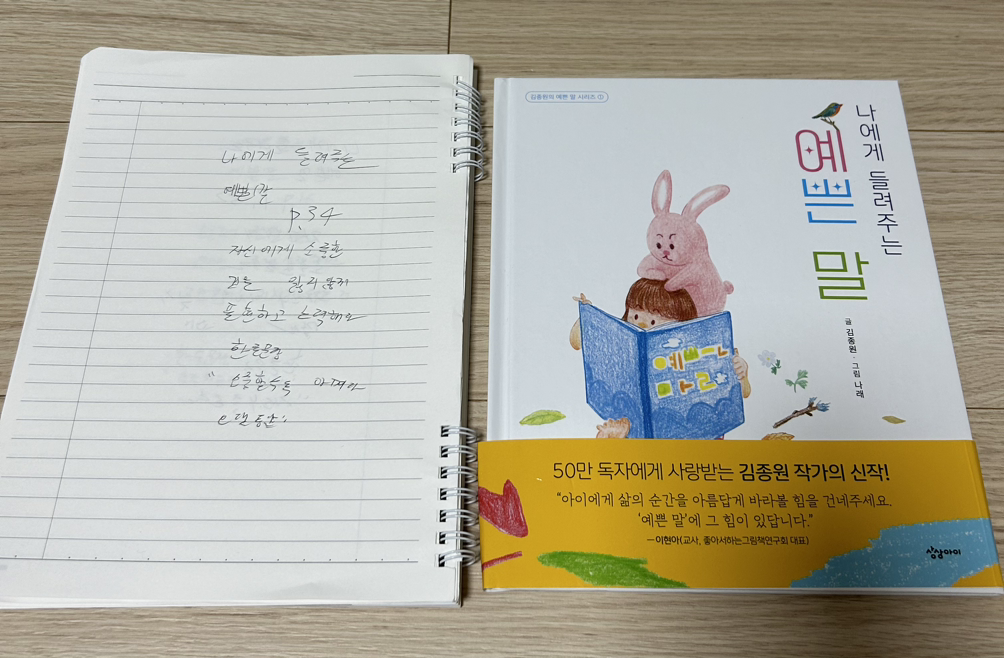 나에게 들려주는
예쁜말
P.34
자신에게 소중한
꿈을 잃지 않게
표현하고 노력해요
한글문장
"소중할수록 아껴야
김종원의 예쁜 말 시리즈 ①
나에게 들려주는
예쁜 말
글 김종원 · 그림 나래
예쁘ㄴ
마ㄹ
50만 독자에게 사랑받는 김종원 작가의 신작!
“아이에게 삶의 순간을 아름답게 바라볼 힘을 건네주세요.
‘예쁜 말’에 그 힘이 있답니다.”
―이현아(교사, 좋아서하는그림책연구회 대표)
상상아이